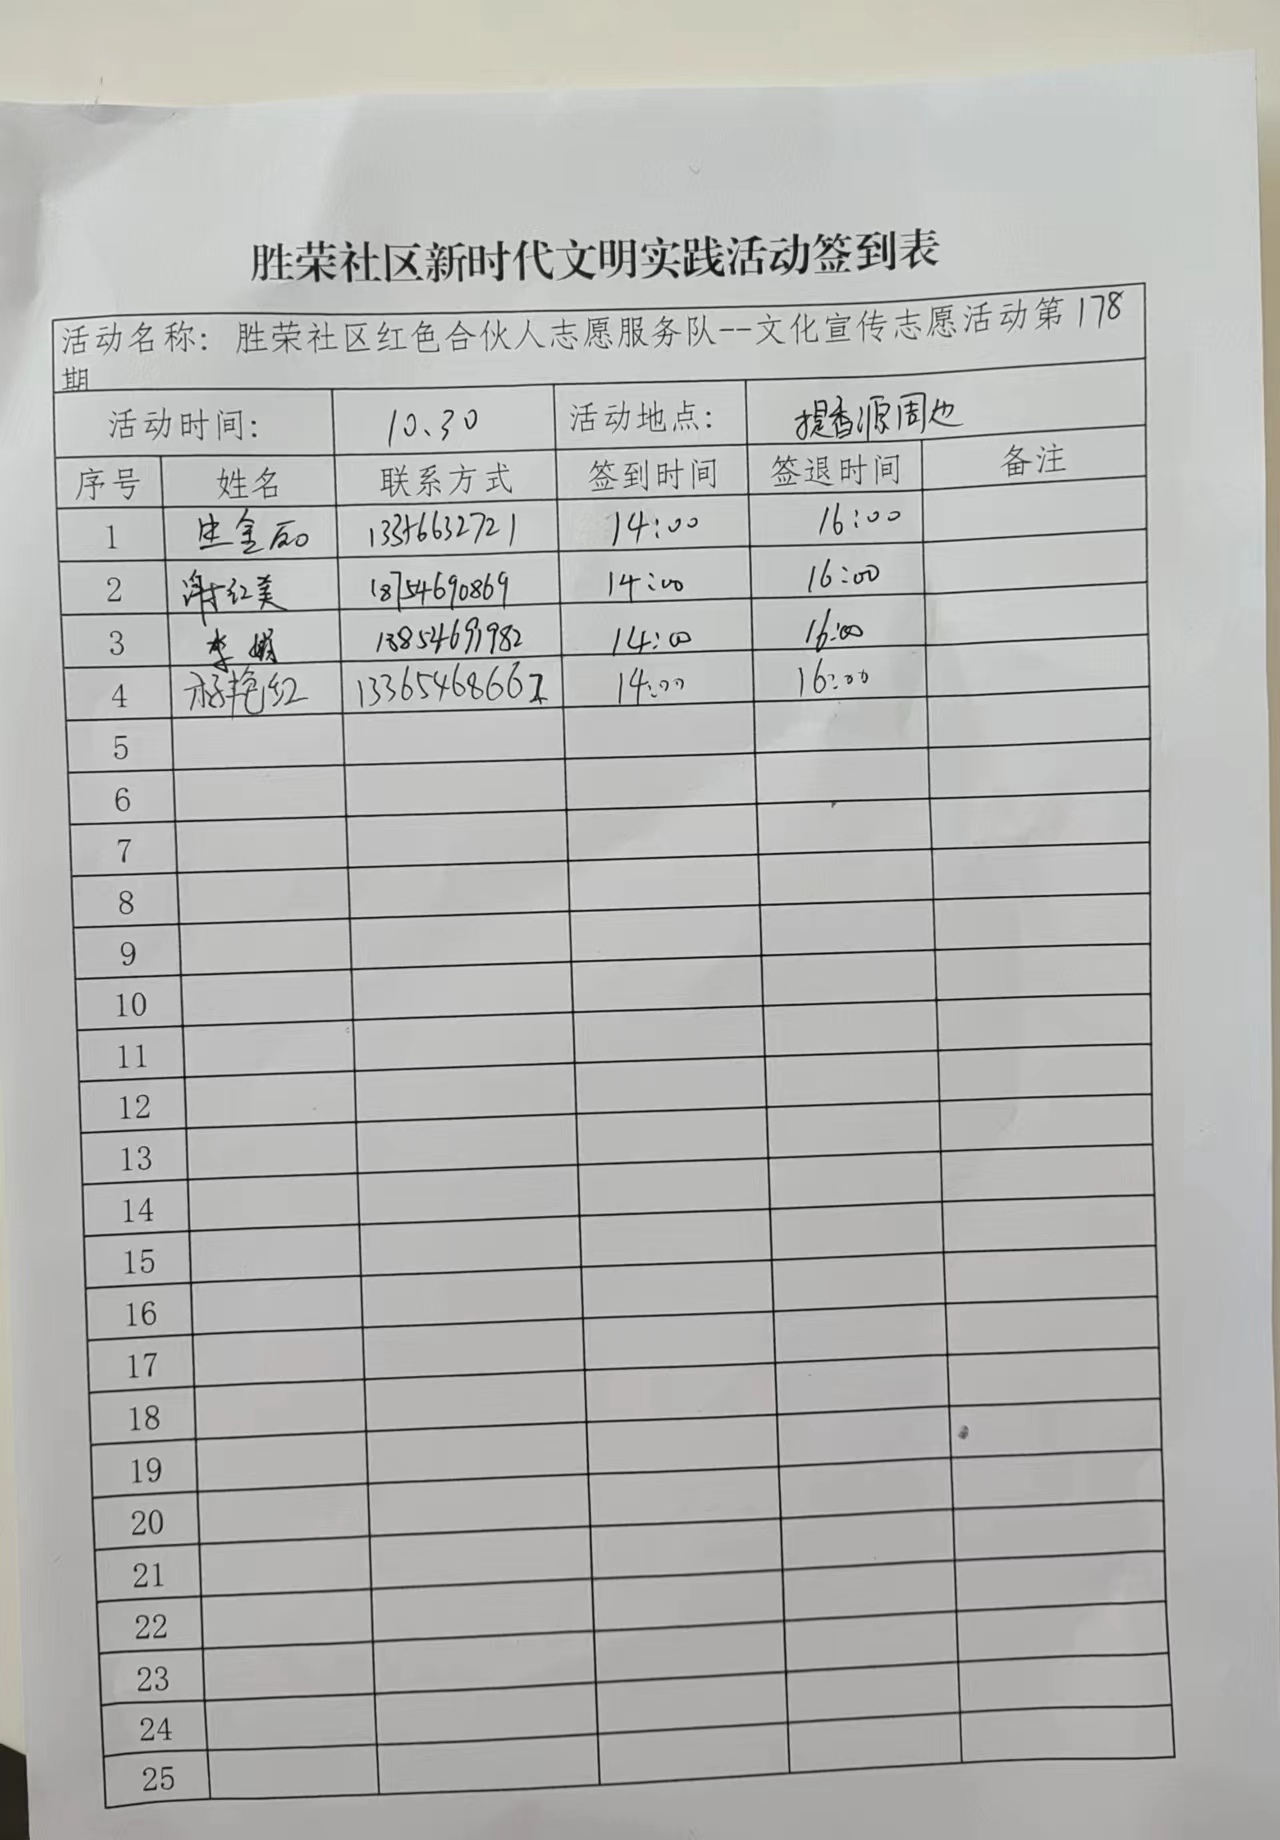 胜荣社区新时代文明实践活动签到表
活动名称：胜荣社区红色合伙人志愿服务队--文化宣传志愿活动第178
期
活动时间： 10、30 活动地点： 提香源周边
序号 姓名 联系方式 签到时间 签退时间 备注
1 14:00 16:00
2 谢红美 18754690869 14:00 16:00
3 李娟 13854691982 14:00 16:00
4 艳红 14:00 16:00
5
6
7
8
9
10
11
12
13
14
15
16
17
18
19
20
21
22
23
24
25